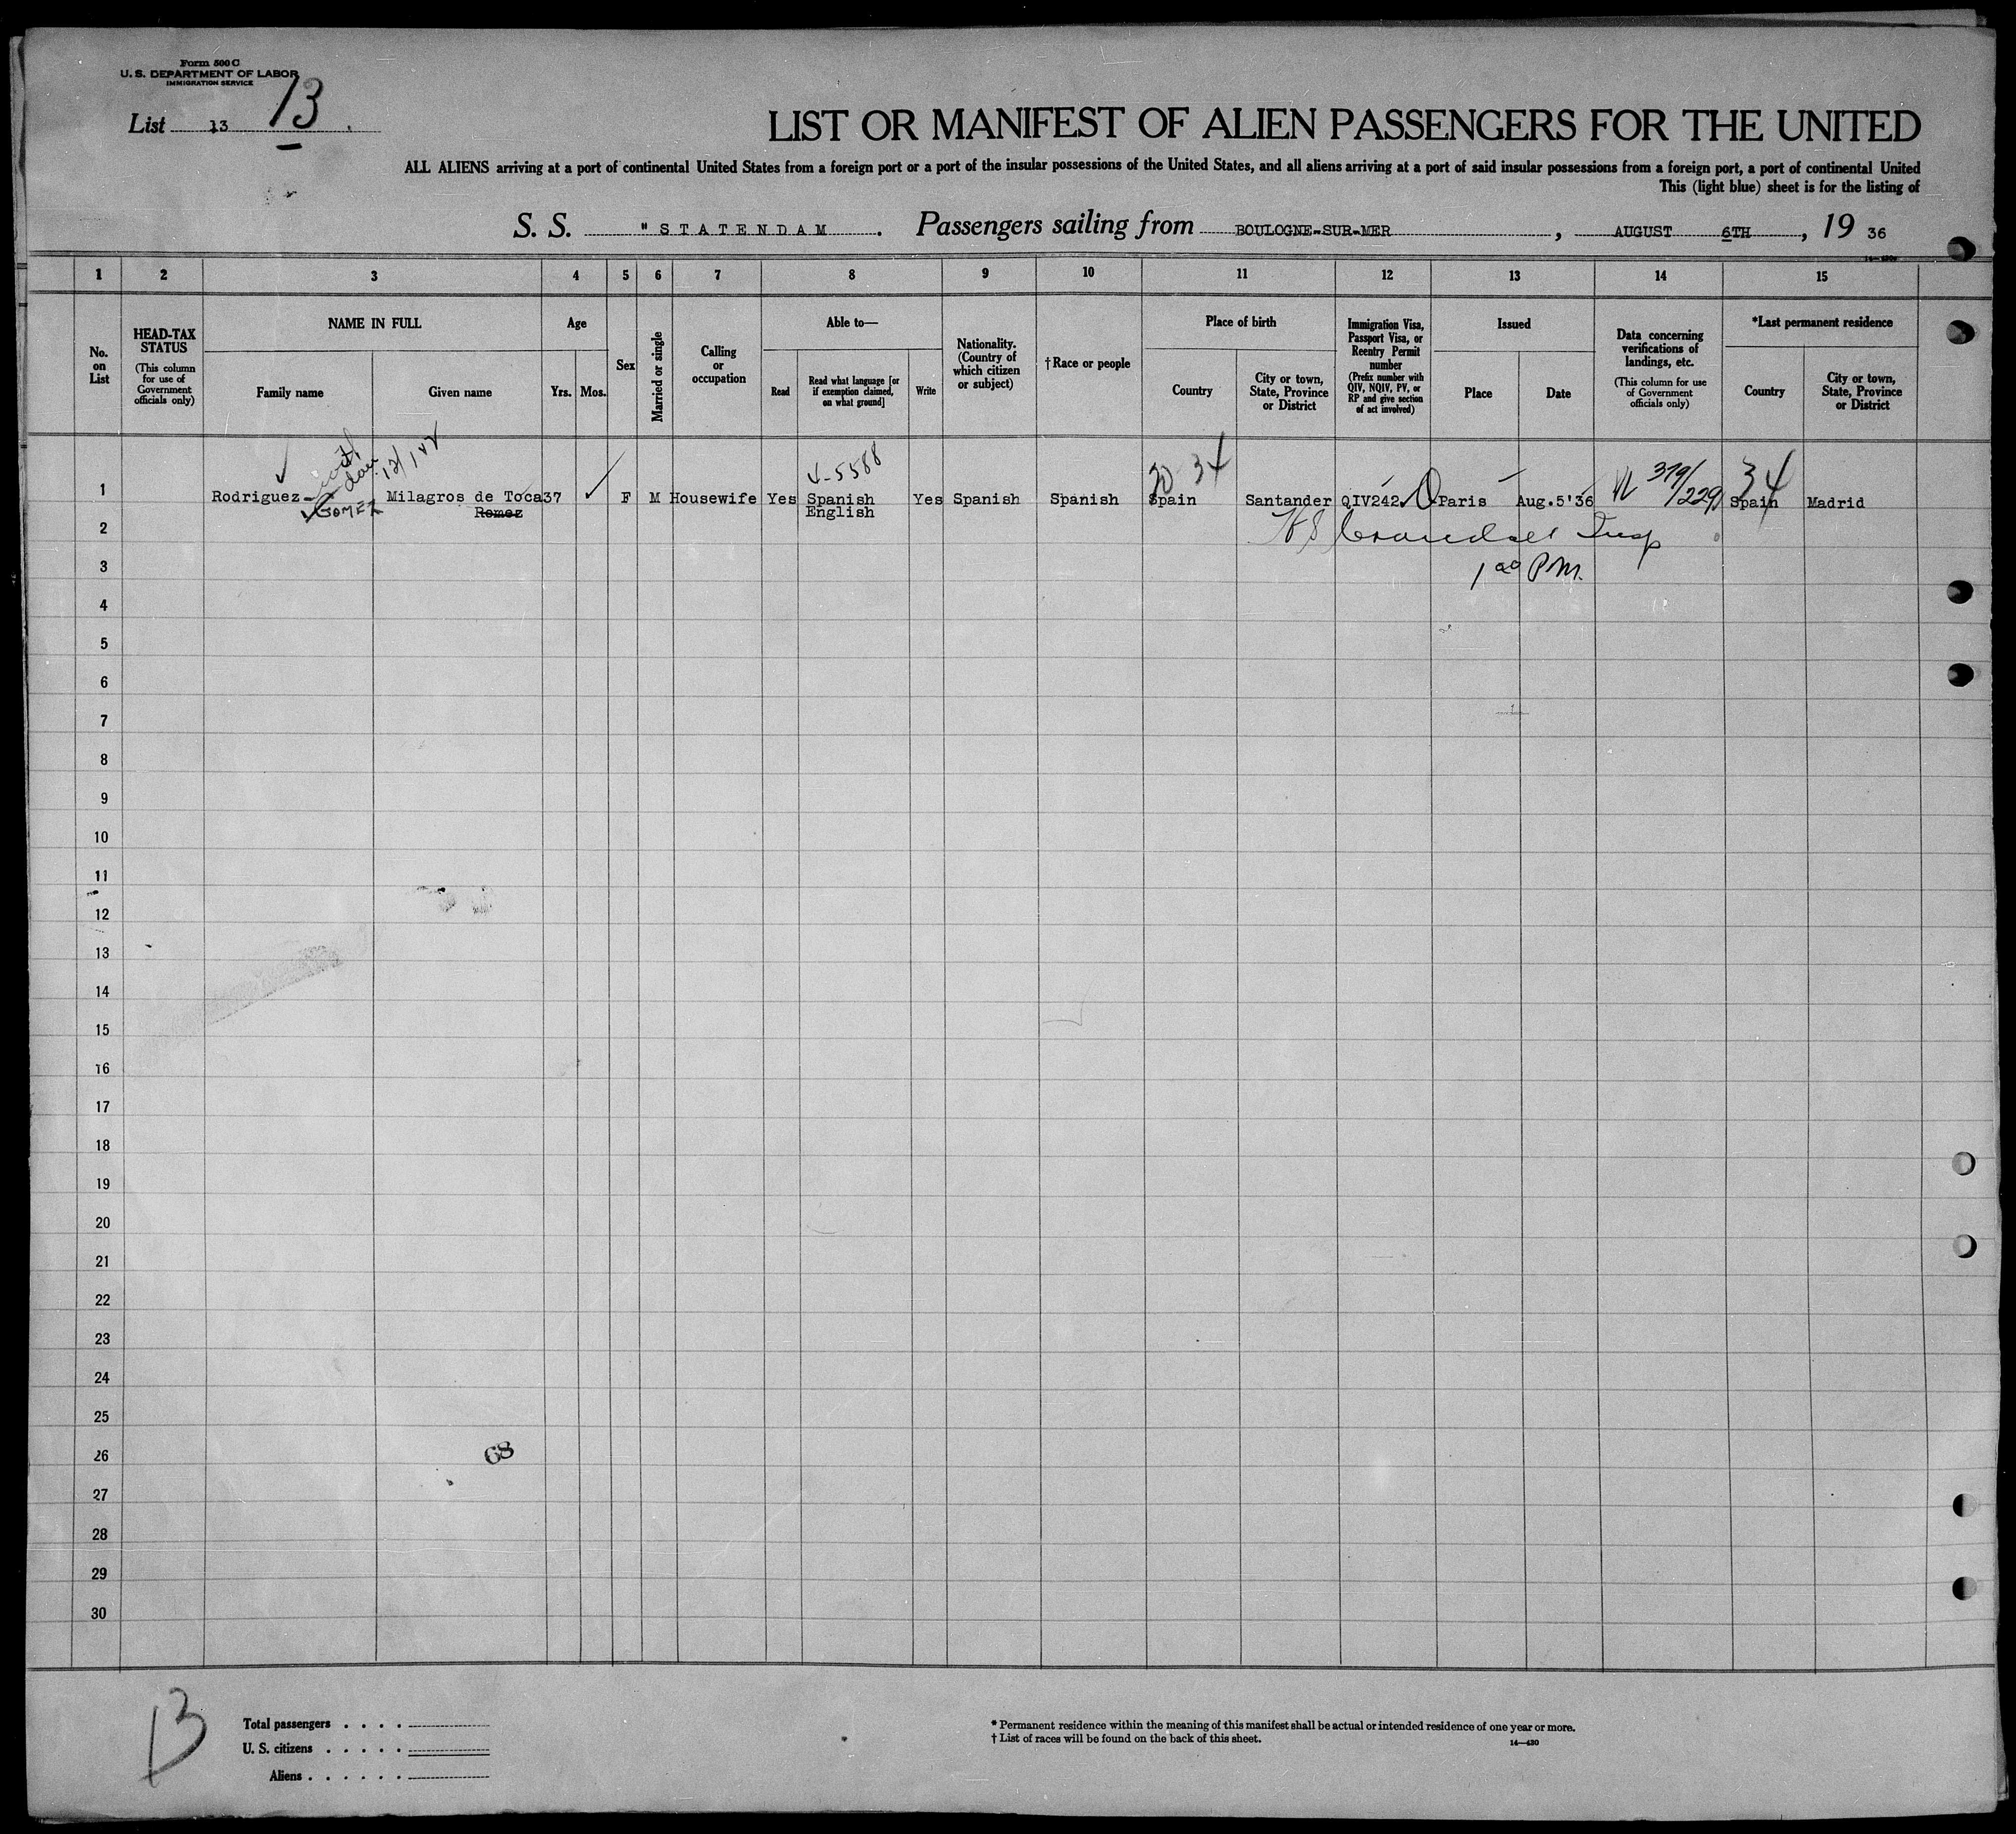 Form 500 C
U. S. DEPARTMENT OF LABOR
IMMIGRATION SERVICE
List 13 13
LIST OR MANIFEST OF ALIEN PASSENGERS FOR THE UNITED
ALL ALIENS arriving at a port of continental United States from a foreign port or a port of the insular possessions of the United States, and all aliens arriving at a port of said insular possessions from a foreign port, a port of continental United
This (light blue) sheet is for the listing of
S. S. "STATENDAM . Passengers sailing from BOULOGNE-SUR-MER , AUGUST 6TH , 19 36
1 2 3 4 5 6 7 8 9 10 11 12 13 14 15
No. on List
HEAD-TAX STATUS
(This column for use of Government officials only)
NAME IN FULL
Family name
Given name
Age
Yrs.
Mos.
Sex
Married or single
Calling or occupation
Able to—
Read
Read what language [or if exemption claimed, on what ground]
Write
Nationality. (Country of which citizen or subject)
† Race or people
Place of birth
Country
City or town, State, Province or District
Immigration Visa, Passport Visa, or Reentry Permit number
(Prefix number with QIV, NQIV, PV, or RP and give section of act involved)
Issued
Place
Date
Data concerning verifications of landings, etc.
(This column for use of Government officials only)
*Last permanent residence
Country
City or town, State, Province or District
12/142
5588
34
379/229
34
1 Rodriguez- Milagros de Toca 37 F M Housewife Yes Spanish Yes Spanish Spanish Spain Santander QIV242 Paris Aug.5'36 Spain Madrid
GOMEZ Romez English
2
Insp
3
1 00 P.M.
4
5
6
7
8
9
10
11
12
13
14
15
16
17
18
19
20
21
22
23
24
25
26
68
27
28
29
30
13
Total passengers . . . .
U. S. citizens . . . . .
Aliens . . . . . .
* Permanent residence within the meaning of this manifest shall be actual or intended residence of one year or more.
† List of races will be found on the back of this sheet.
14—430